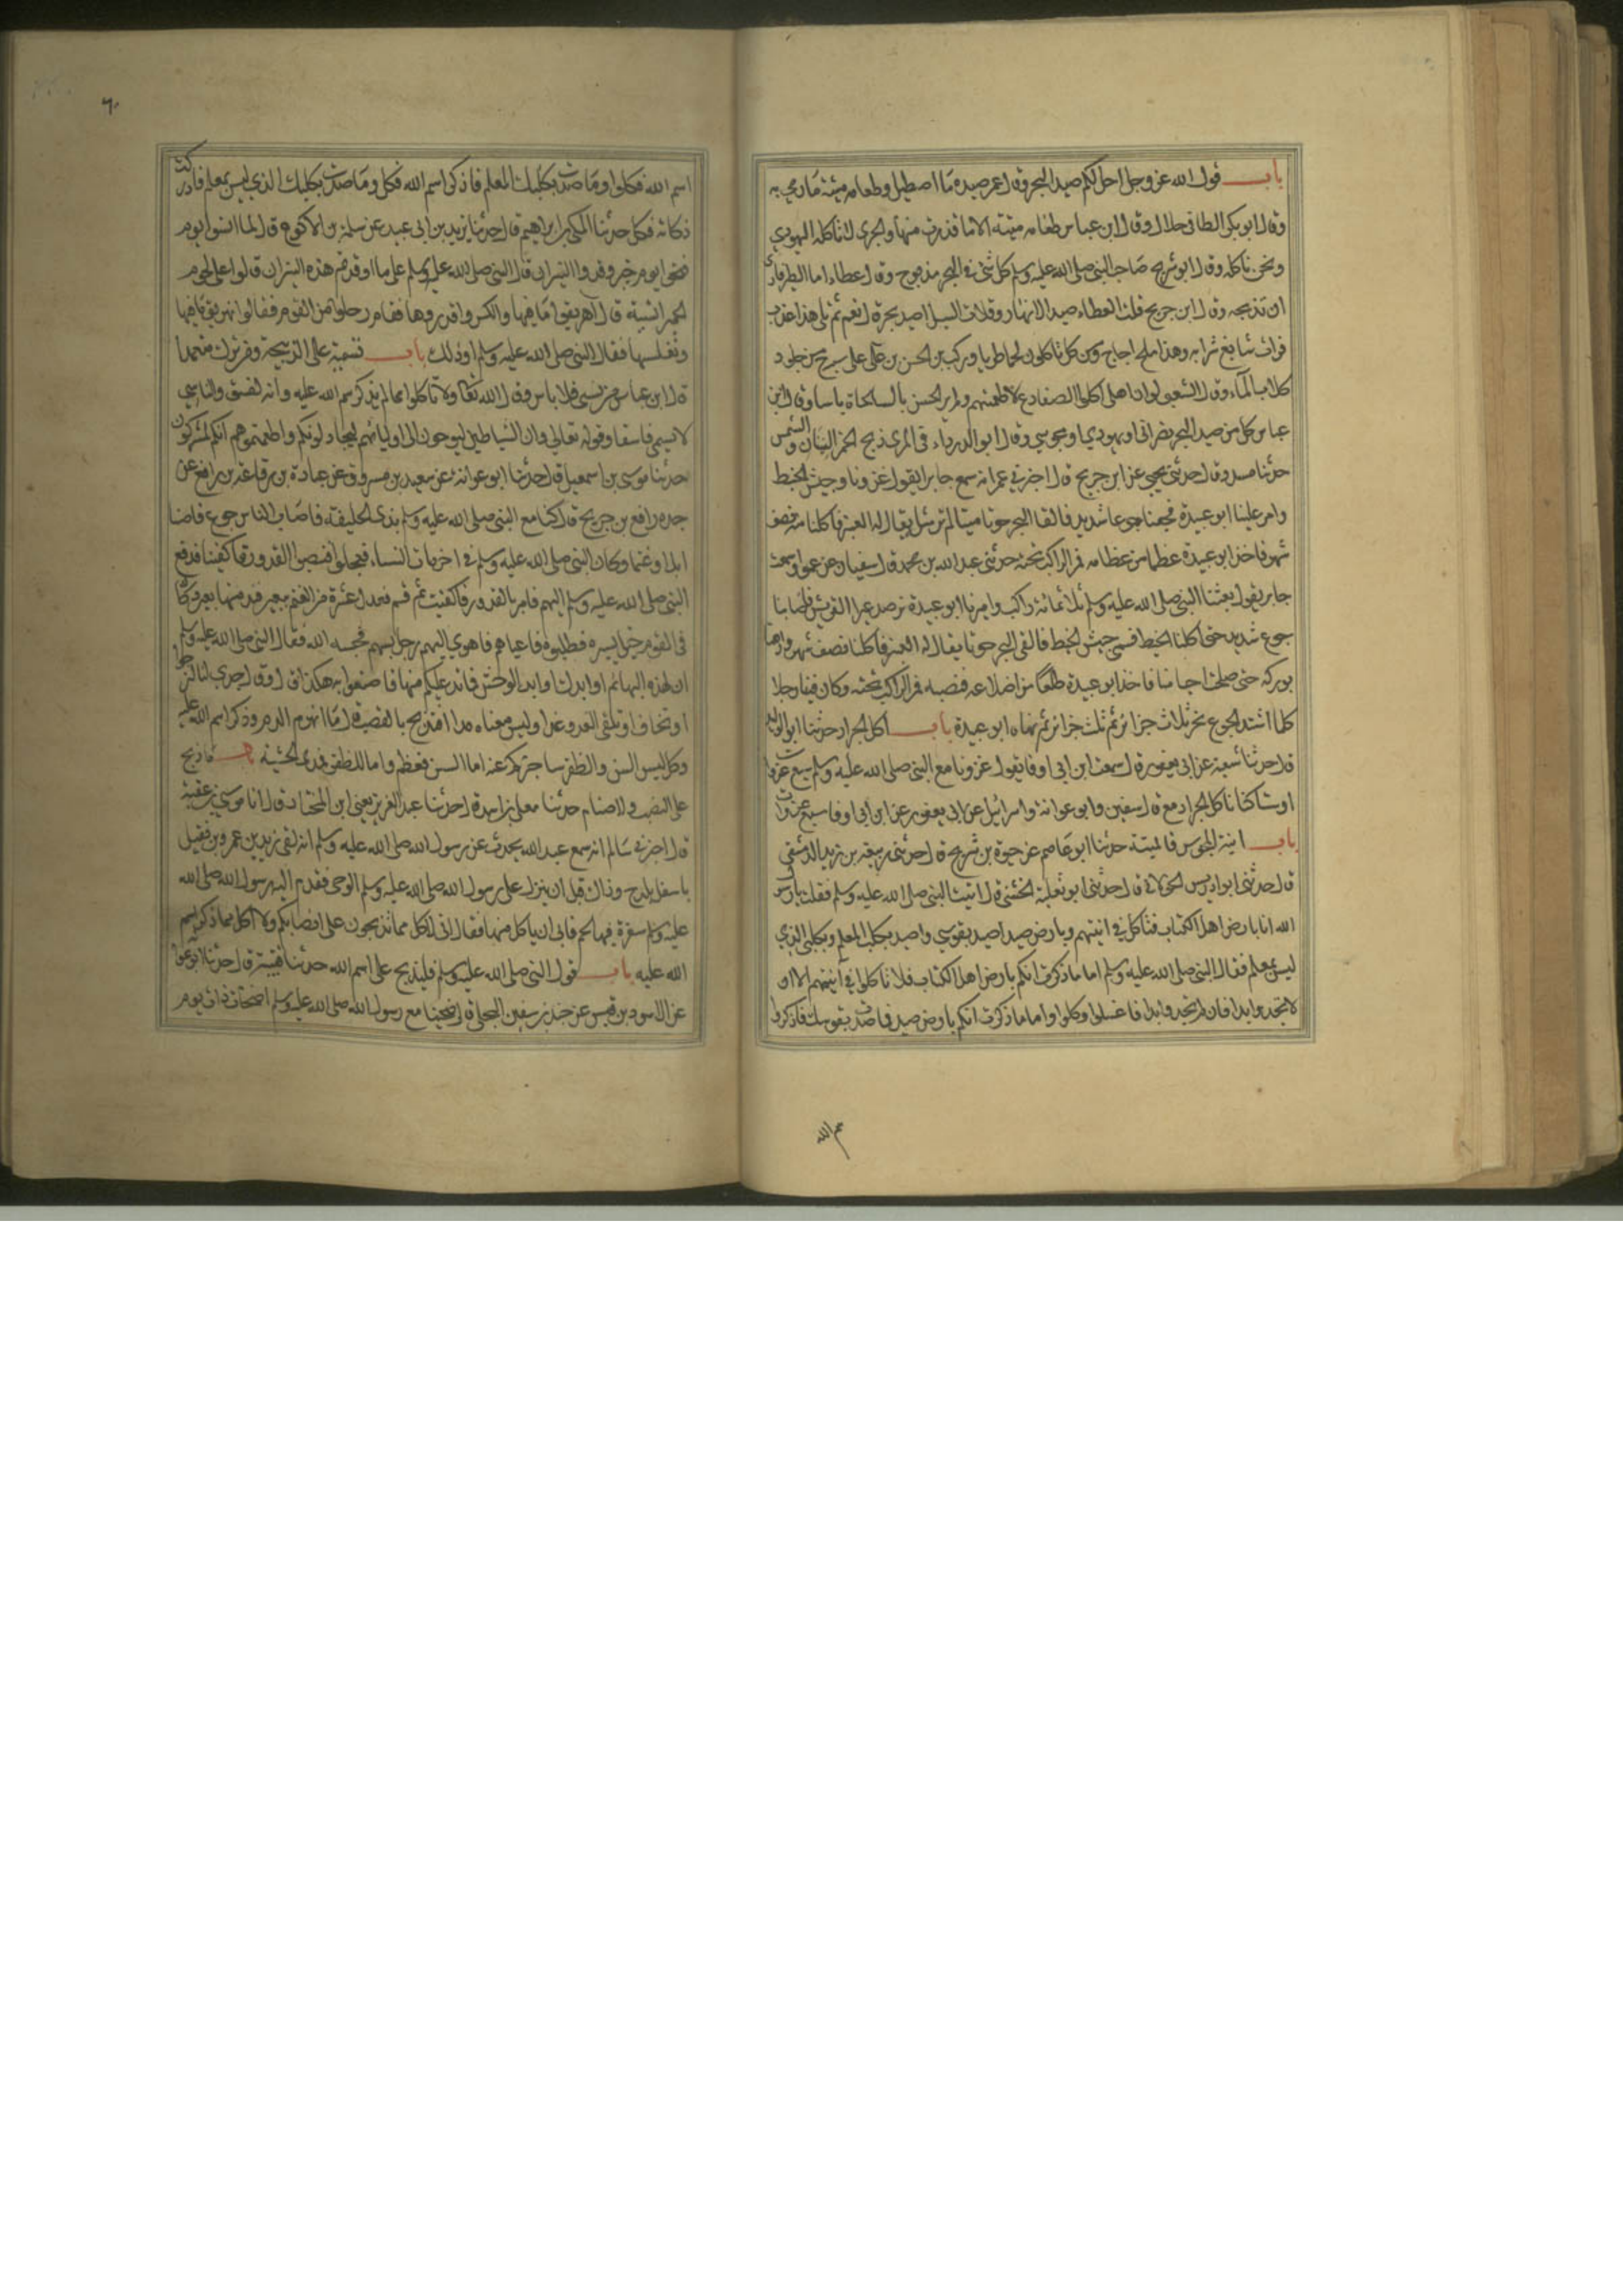 باب قول الله عز وجل احل لكم صيد البحر وقال عمر صيده ما اصطيل وطعامه ميتته ما رمي به
وقال ابو بكر الطافي حلال وقال ابن عباس طعامه ميتته الا ما قذرت منها والجري لا تاكله اليهودي
ونحن ناكله وقال ابو شريح صاحب النبي صلى الله عليه وسلم كل شئ في البحر مذبوح وقال عطاء اما الطير فارى
ان تذبحه وقال ابن جريح قلت لعطاء صيد الانهار وقلات السيل اصيد بحر قال نعم ثم تلى هذا عذب
فرات سايغ شرابه وهذا ملح اجاج ومن كل تاكلون لحما طريا وركب الحسن بن علي على سرج من جلود
كلاب الماء وقال الشعبي لو ان اهلي اكلوا الضفادع لاطعمتهم ولم ير الحسن بالسلحاة باسا وقال ابن
عباس كل من صيد البحر نصراني او يهودي او مجوسي وقال ابو الدرداء في المري ذبح الخمر النينان والشمس
حدثنا مسدد قال حدثني يحيى عن ابن جريح قال اخبرني عمر انه سمع جابرا يقول غزونا وجيش الخبط
وامر علينا ابو عبيدة فجعنا جوعا شديد فالقا البحر حوتا ميتا لم نر مثل يقال له العنبر فاكلنا منه نصف
شهر فاخذ ابو عبيدة عظما من عظامه فمر الراكب تحته حدثني عبد الله بن محمد قال سفيان عن عمرو سمعت
جابر يقول بعثنا النبي صلى الله عليه وسلم ثلاثمائة راكب وامرنا ابو عبيدة نرصد عيرا لقريش فاصابنا
جوع شديد حتى اكلنا الخبط فسمي جيش الخبط فالقى البحر حوتا يقال له العنبر فاكلنا نصف شهر وادهنا
بودكه حتى صلحت اجسامنا فاخذ ابو عبيدة ضلعا من اضلاعه فنصبه فمر الراكب تحته وكان فينا رجلا
كلما اشتد الجوع نحر ثلاث جزائر ثم ثلث جزائر ثم نهاه ابو عبيدة باب اكل الجراد حدثنا ابو الوليد
قال حدثنا شعبة عن ابي يعفور قال سمعت ابن ابي اوفا يقول غزونا مع النبي صلى الله عليه وسلم سبع غزوات
او ستا كنا ناكل الجراد معه قال سفين وابو عوانة واسرائيل عن ابي يعفور عن ابن ابي اوفا سبع غزوات
باب انية المجوس فالميتة حدثنا ابو عاصم عن حيوة بن شريح قال حدثني ربيعة بن زيد الدمشقي
قال حدثني ابو ادريس الخولاني قال حدثني ابو ثعلبة الخشني قال اتيت النبي صلى الله عليه وسلم فقلت يا رسول
الله انا بارض اهل الكتاب فناكل في انيتهم وبارض صيد اصيد بقوسي واصيد بكلبي المعلم وبكلبي الذي
ليس بمعلم فقال النبي صلى الله عليه وسلم اما ما ذكرت انكم بارض اهل الكتاب فلا تاكلوا في آنيتهم الا ان
لا تجدوا بدا فان لم تجدوا بدا فاغسلوا وكلوا واما ما ذكرت انكم بارض صيد فما صدت بقوسك فاذكروا
٦٠
اسم الله فكلوا وما صدت بكلبك المعلم فاذكر اسم الله فكل وما صدت بكلبك الذي ليس بمعلم فادركت
ذكاته فكل حدثنا المكي بن ابراهيم قال حدثنا يزيد بن ابي عبيد عن سلمة بن الاكوع قال لما امسوا يوم
فتحوا يوم خيبر وقدوا النيران قال النبي صلى الله عليه وسلم على ما اوقدتم هذه النيران قالوا على لحوم
الحمر انسية قال اهريقوا ما فيها واكسروا قدورها فقام رجل من القوم فقالوا نهريق ما فيها
ونغسلها فقال النبي صلى الله عليه وسلم او ذلك باب تسمية على الذبيحة ومن ترك متعمدا
قال ابن عباس من نسي فلا باس وقال الله تعالى ولا تاكلوا مما لم يذكر اسم الله عليه وانه لفسق والناسي
لا يسمى فاسقا وقوله تعالى وان الشياطين ليوحون الى اوليائهم ليجادلوكم وان اطعتموهم انكم لمشركون
حدثنا موسى بن اسمعيل قال حدثنا ابو عوانة عن سعيد بن مسروق عن عباده بن رفاعة بن رافع عن
جده رافع بن جريح قال كنا مع النبي صلى الله عليه وسلم بذي الحليفة فاصاب الناس جوع فاصبنا
ابلا وغنما وكان النبي صلى الله عليه وسلم في اخريات النساء فعجلوا فنصبوا القدور فدفع
النبي صلى الله عليه وسلم اليهم فامر بالقدور فاكفيت ثم قسم فعدل عشرة من الغنم ببعير فند منها بعير وكان
في القوم خيل يسيره فطلبوه فاعياهم فاهوي اليهم رجل بسهم فحبسه الله فقال النبي صلى الله عليه وسلم
ان لهذه البهائم اوابد كاوابد الوحش فما ند عليكم منها فاصنعوا به هكذا قال وقال جدي انا لنرجوا
او نخاف ان نلقى العدو غدا وليس معنا مدا افنذبح بالقصب قال ما انهر الدم وذكر اسم الله عليه
وكل ليس السن والظفر ساخبركم عنه اما السن فعظم واما الظفر فمدى الحبشة باب ما ذبح
على النصب والاصنام حدثنا معلى بن اسد قال حدثنا عبد العزيز يعني ابن المختار قال انا موسى بن عقبة
قال اخبرني سالم انه سمع عبد الله يحدث عن رسول الله صلى الله عليه وسلم انه لقى زيد بن عمرو بن نفيل
باسفل بلدح وذاك قبل ان ينزل على رسول الله صلى الله عليه وسلم الوحى فقدم اليه رسول الله صلى الله
عليه وسلم سفرة فيها لحم فابى ان ياكل منها فقال اني لا اكل مما تذبحون على انصابكم ولا آكل مما ذكر اسم
الله عليه باب قول النبي صلى الله عليه وسلم فليذبح على اسم الله حدثنا قتيبة قال حدثنا ابو عوانة
عن الاسود بن قيس عن جندب بن سفين البجلي قال ضحينا مع رسول الله صلى الله عليه وسلم اضحاة ذات يوم